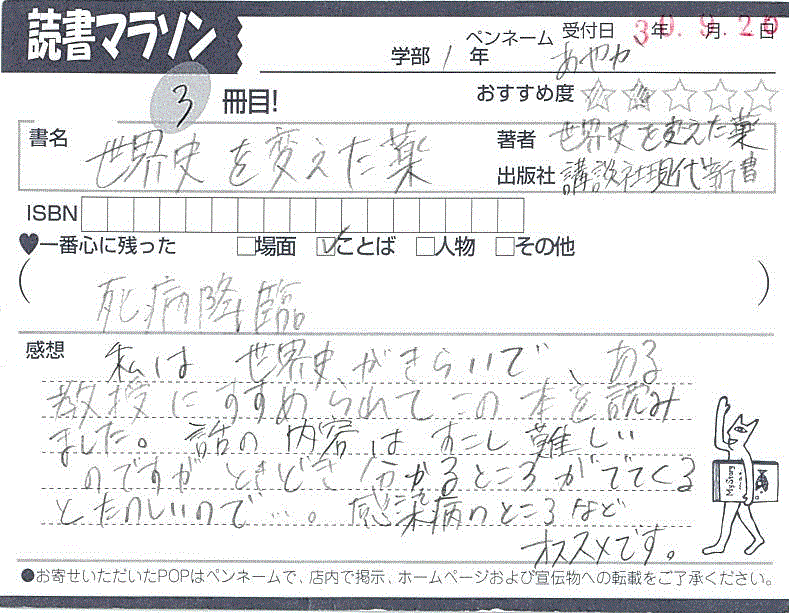 読書マラソン
学部 1 年 ペンネーム あやか 受付日 30年 9月 26日
3 冊目! おすすめ度 ☆☆☆☆☆
書名 世界史を変えた薬 著者 世界史を変えた薬
出版社 講談社現代新書
ISBN
♥一番心に残った □場面 ☑ことば □人物 □その他
( 死病降臨 )
感想 私は 世界史がきらいで、ある
教授にすすめられてこの本を読み
ました。話の内容はすこし難しい
のですがときどき分かるところがでてくる
とたのしいので…。感染病のところなど
オススメです。
My Story
●お寄せいただいたPOPはペンネームで、店内で掲示、ホームページおよび宣伝物への転載をご了承ください。